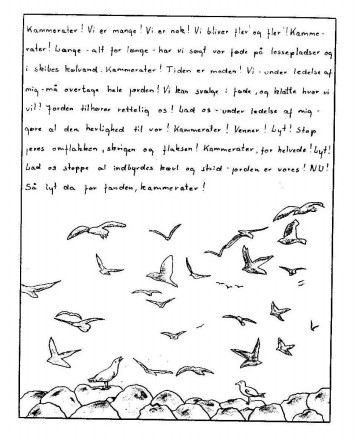 Kammerater! Vi er mange! Vi er nok! Vi bliver fler' og fler'! Kamme-
rater! Længe - alt for længe - har vi søgt vor føde på lossepladser og
i skibes kølvand. Kammerater! Tiden er moden! Vi - under ledelse af
mig - må overtage hele jorden! Vi kan svælge i føde, og klatte hvor vi
vil! Jorden tilhører rettelig os! Lad os - under ledelse af mig -
gøre al den herlighed til vor! Kammerater! Venner! Lyt! Stop
jeres omflakken, skrigen og flaksen! Kammerater, for helvede! Lyt!
Lad os stoppe al indbyrdes kævl og strid - jorden er vores! NU!
Så lyt da for fanden, kammerater!